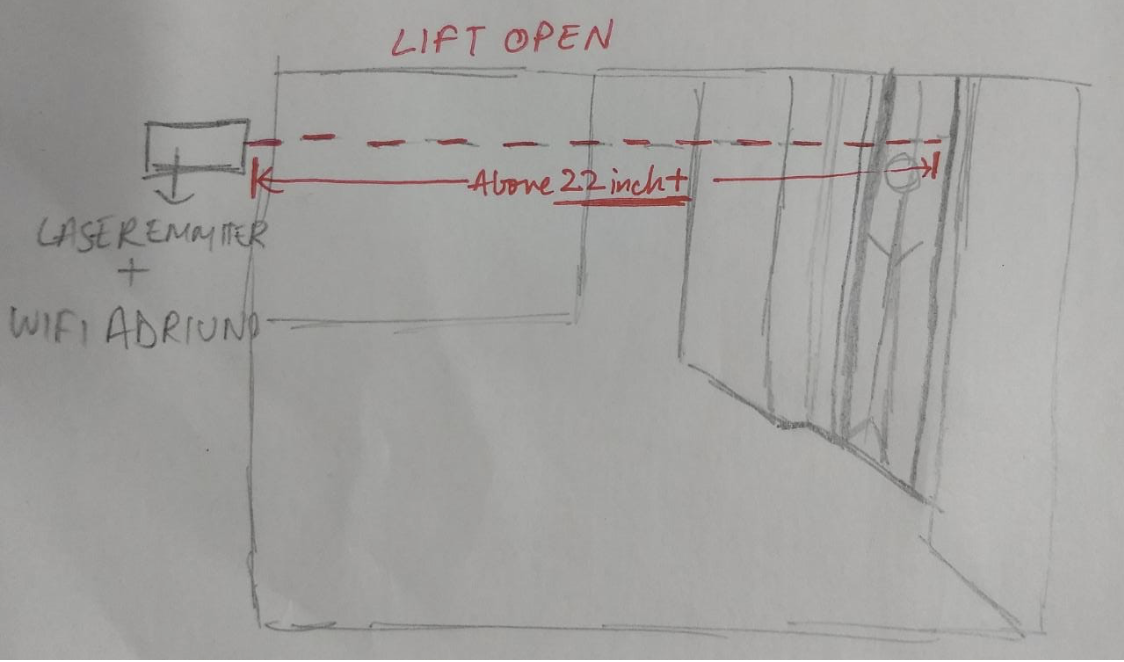 LIFT OPEN
Above 22 inch+
LASER EMMITER
+
WIFI ADRIUNO